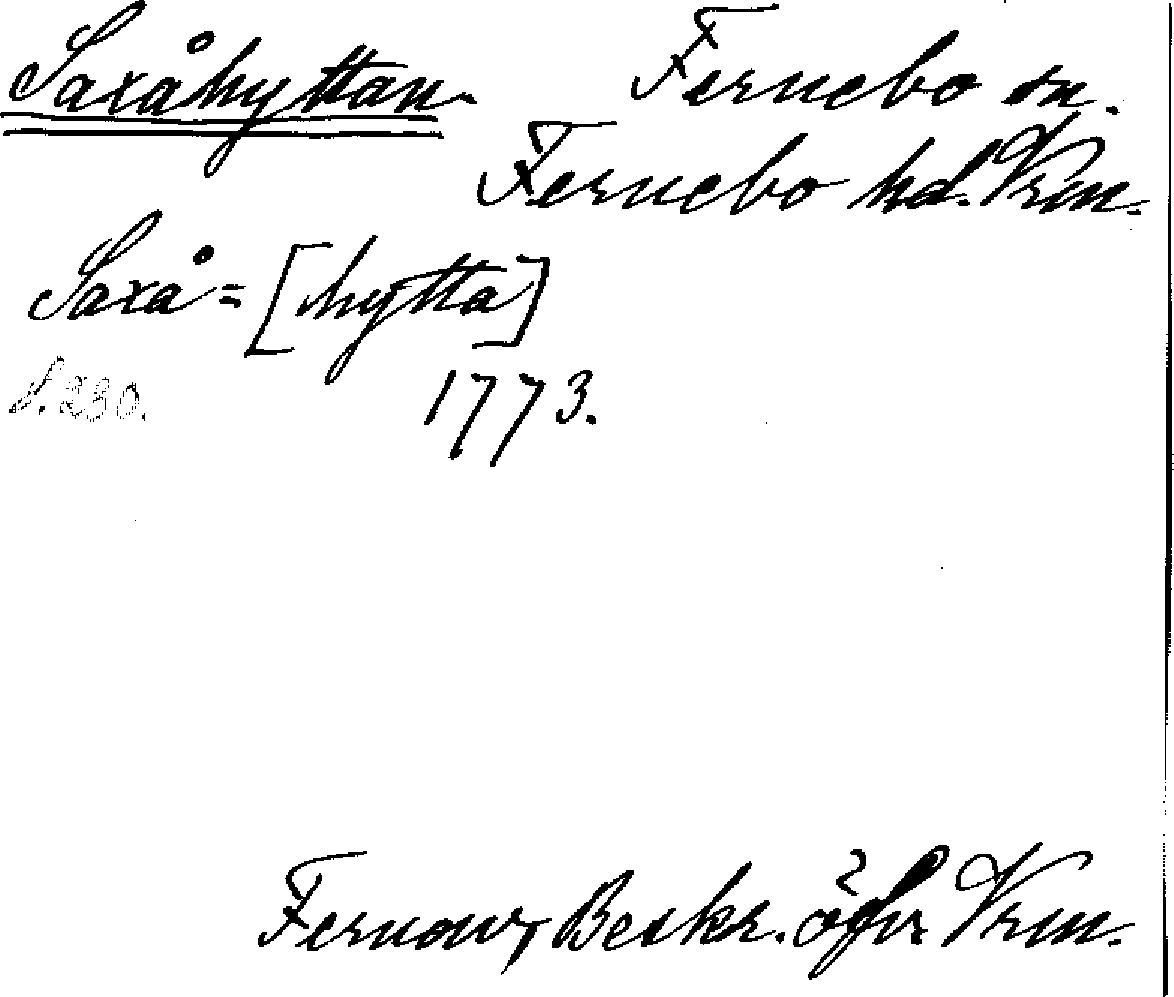 Saxåhyttan. Fernebo sn.
Fernebo hd. Vrm.
Saxå = [hytta]
S. 230. 1773.
Fernow, Beskr. öfvr Vrm.